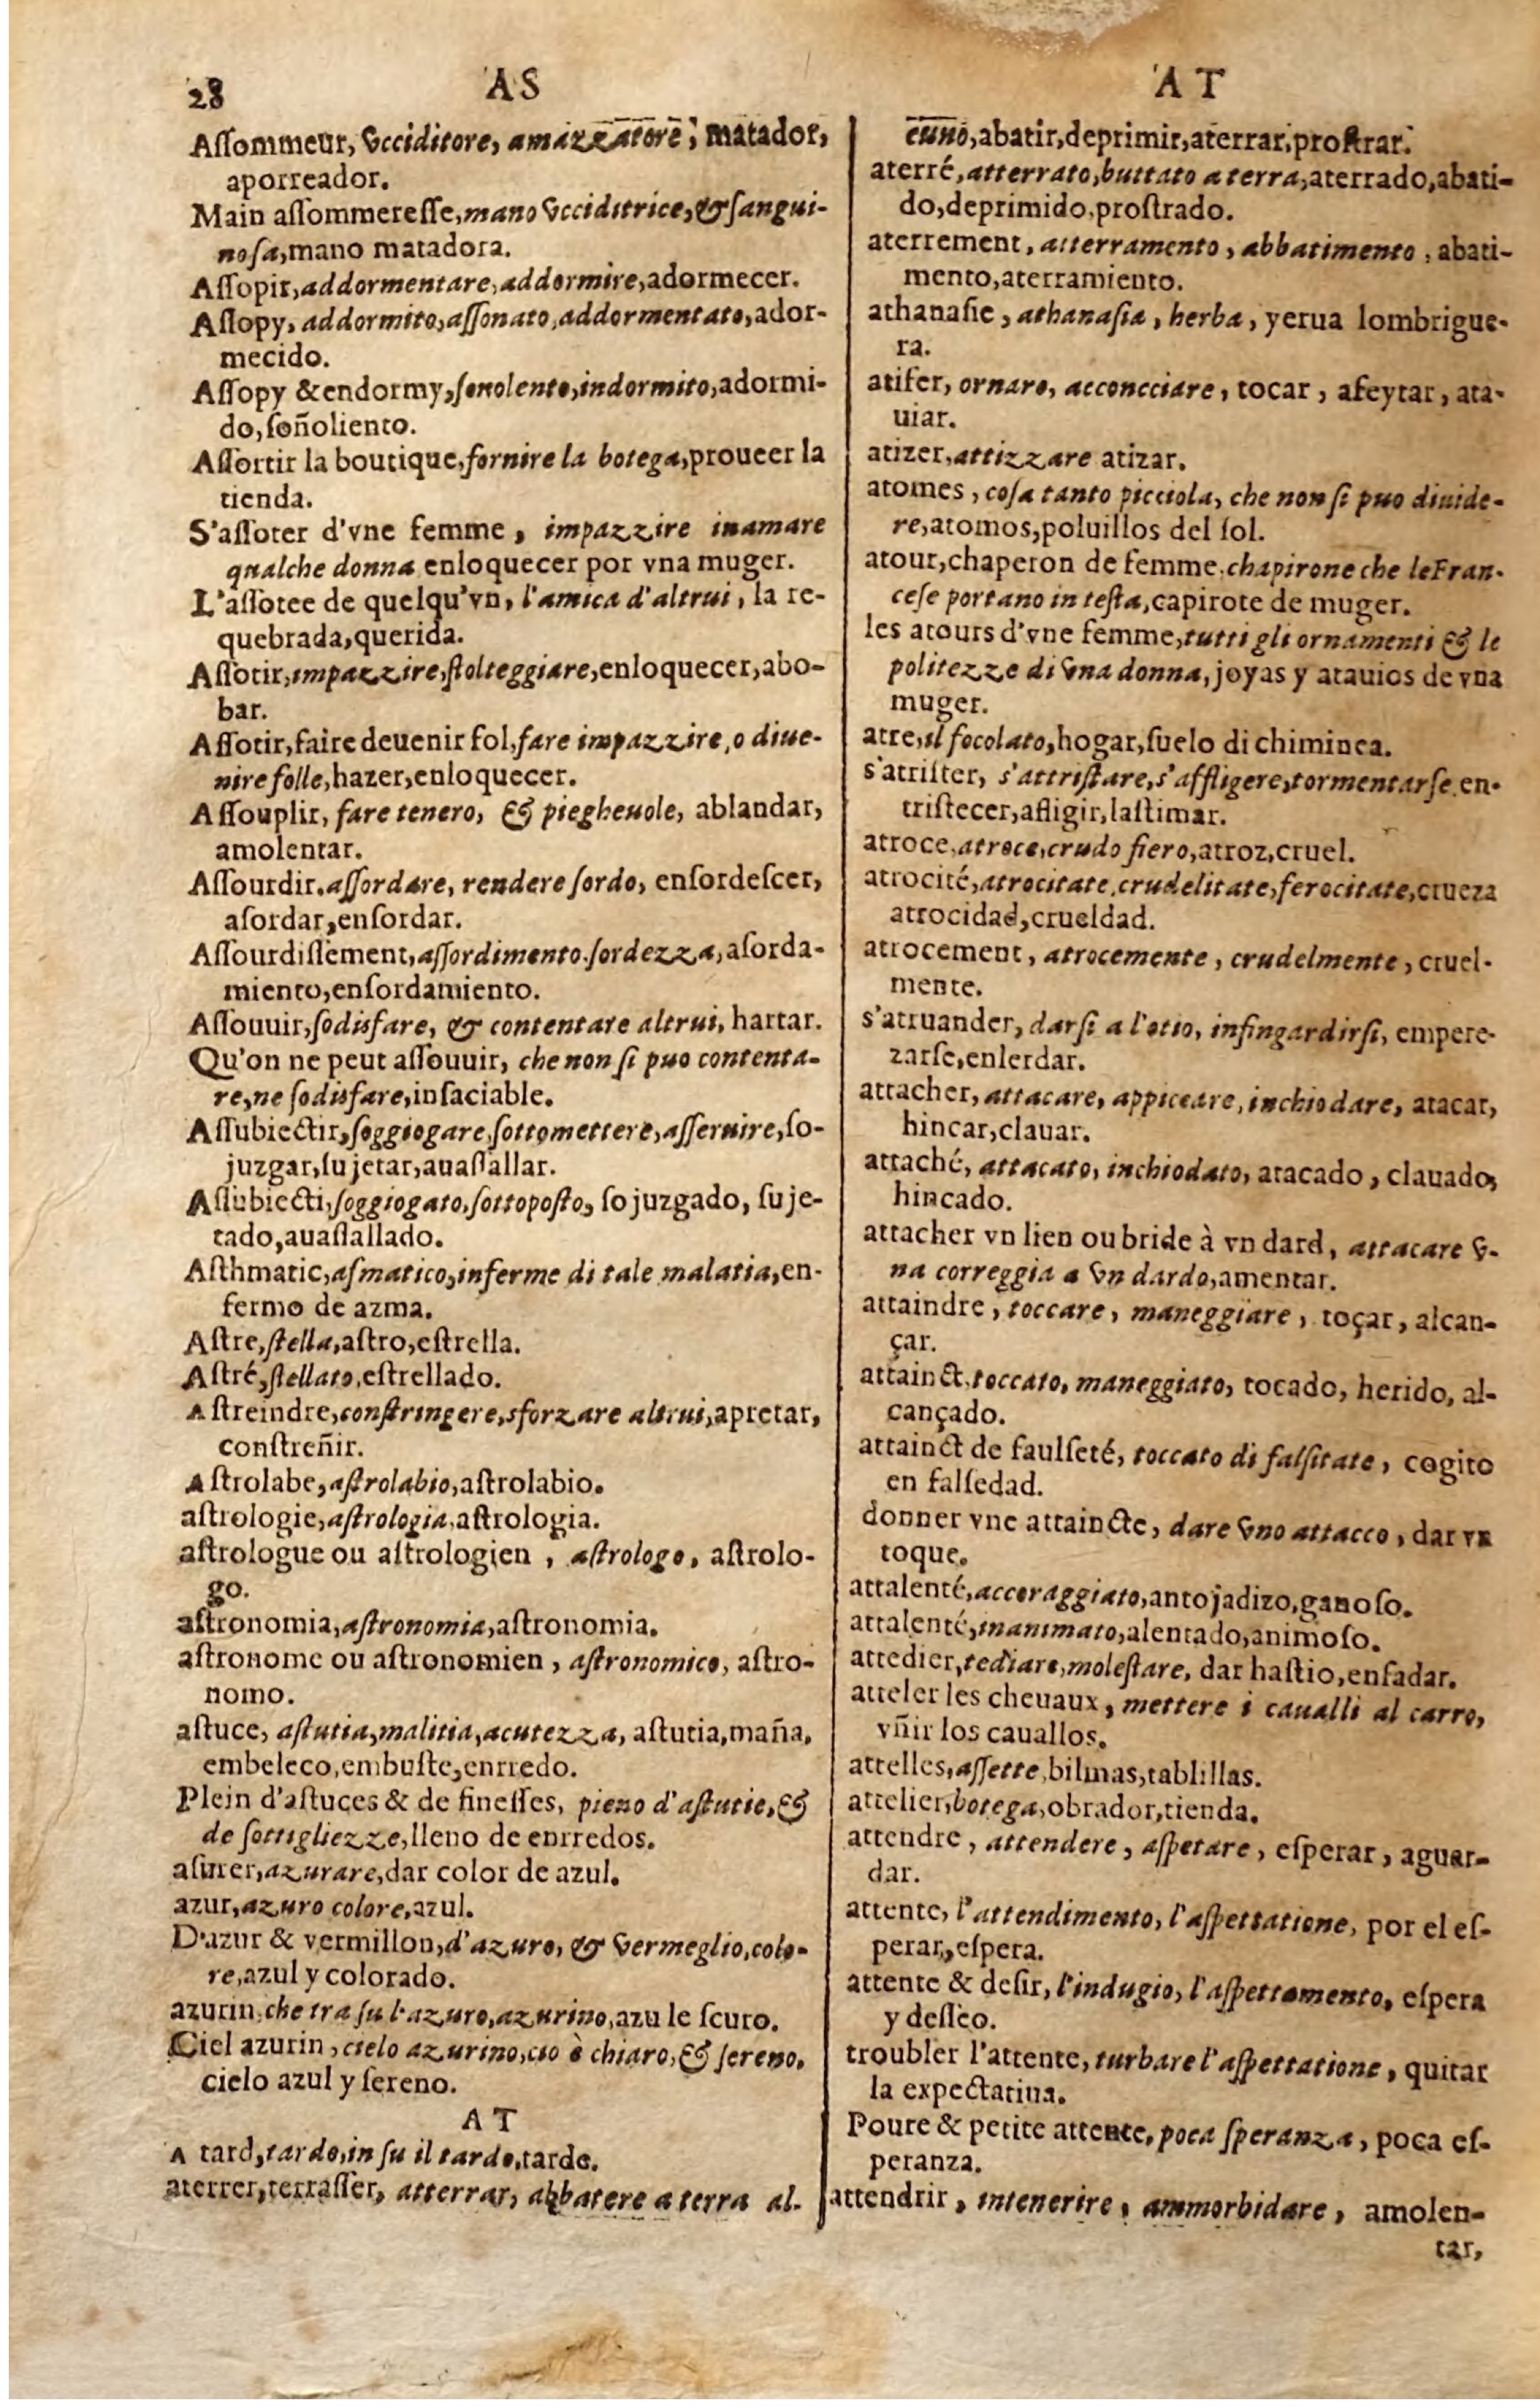 28
AS
AT
Aſſommeur, vcciditore, amazzatore, matador,
aporreador.
Main aſſommereſſe,mano vcciditrice,& ſangui-
noſa,mano matadora.
Aſſopir,addormentare,addormire,adormecer.
Aſſopy, addormito,aſſonato,addormentato,ador-
mecido.
Aſſopy &endormy,ſonolento,indormito,adormi-
do,ſoñoliento.
Aſſortir la boutique,fornire la botega,proueer la
tienda.
S'aſſoter d'vne femme, impazzire inamare
qualche donna enloquecer por vna muger.
L'aſſotee de quelqu'vn, l'amica d'altrui, la re-
quebrada,querida.
Aſſotir,impazzire,ſtolteggiare,enloquecer,abo-
bar.
Aſſotir,faire deuenir fol,fare impazzire,o diue-
nire folle,hazer,enloquecer.
Aſſouplir, fare tenero, & piegheuole, ablandar,
amolentar.
Aſſourdir,aſſordare, rendere ſordo, enſordeſcer,
aſordar,enſordar.
Aſſourdiſſement,aſſordimento,ſordezza,aſorda-
miento,enſordamiento.
Aſſouuir,ſodisfare, & contentare altrui, hartar.
Qu'on ne peut aſſouuir, che non ſi puo contenta-
re,ne ſodisfare,inſaciable.
Aſſubiectir,ſoggiogare,ſottomettere,aſſeruire,ſo-
juzgar,ſujetar,auaſſallar.
Aſſubiecti,ſoggiogato,ſottopoſto, ſojuzgado, ſuje-
tado,auaſſallado.
Aſthmatic,aſmatico,inferme di tale malatia,en-
fermo de azma.
Aſtre,ſtella,aſtro,eſtrella.
Aſtré,ſtellato,eſtrellado.
Aſtreindre,conſtringere,sforzare altrui,apretar,
conſtreñir.
Aſtrolabe,aſtrolabio,aſtrolabio.
aſtrologie,aſtrologia,aſtrologia.
aſtrologue ou aſtrologien, aſtrologo, aſtrolo-
go.
aſtronomia,aſtronomia,aſtronomia.
aſtronome ou aſtronomien, aſtronomico, aſtro-
nomo.
aſtuce, aſtutia,malitia,acutezza, aſtutia,maña,
embeleco,embuſte,enrredo.
Plein d'aſtuces & de fineſſes, pieno d'aſtutie,&
de ſottigliezze,lleno de enrredos.
aſurer,azurare,dar color de azul.
azur,azuro colore,azul.
D'azur & vermillon,d'azuro, & vermeglio,colo-
re,azul y colorado.
azurin,che tra ſu l'azuro,azurino,azu le ſcuro.
Ciel azurin,cielo azurino,cio è chiaro,& ſereno,
cielo azul y ſereno.
AT
A tard,tardo,in ſu il tardo,tarde.
aterrer,terraſſer, atterrar, abbatere a terra al-
cuno,abatir,deprimir,aterrar,proſtrar.
aterré,atterrato,buttato a terra,aterrado,abati-
do,deprimido,proſtrado.
aterrement, atterramento, abbatimento, abati-
mento,aterramiento.
athanaſie, athanaſia, herba, yerua lombrigue-
ra.
atifer, ornare, acconcciare, tocar, afeytar, ata-
uiar.
atizer,attizzare atizar.
atomes, coſa tanto picciola, che non ſi puo diuide-
re,atomos,poluillos del ſol.
atour,chaperon de femme,chapirone che leFran-
ceſe portano in teſta,capirote de muger.
les atours d'vne femme,tutti gli ornamenti & le
politezze di vna donna,joyas y atauios de vna
muger.
atre,il focolato,hogar,ſuelo di chiminea.
s'atriſter, s'attriſtare,s'affligere,tormentarſe,en-
triſtecer,afligir,laſtimar.
atroce,atroce,crudo fiero,atroz,cruel.
atrocité,atrocitate,crudelitate,ferocitate,crueza
atrocidad,crueldad.
atrocement, atrocemente, crudelmente, cruel-
mente.
s'atruander, darſi a l'otio, infingardirſi, empere-
zarſe,enlerdar.
attacher, attacare, appiccare,inchiodare, atacar,
hincar,clauar.
attaché, attacato, inchiodato, atacado, clauado,
hincado.
attacher vn lien ou bride à vn dard, attacare v-
na correggia a vn dardo,amentar.
attaindre, toccare, maneggiare, toçar, alcan-
çar.
attainct,toccato, maneggiato, tocado, herido, al-
cançado.
attainct de faulſeté, toccato di falſitate, cogito
en falſedad.
donner vne attaincte, dare vno attacco, dar vn
toque.
attalenté,accoraggiato,antojadizo,ganoſo.
attalenté,inanimato,alentado,animoſo.
attedier,tediare,moleſtare, dar haſtio,enfadar.
atteler les cheuaux, mettere i caualli al carro,
vñir los cauallos.
attelles,aſſette,bilmas,tablillas.
attelier,botega,obrador,tienda.
attendre, attendere, aſpetare, eſperar, aguar-
dar.
attente, l'attendimento, l'aſpettatione, por el eſ-
perar,eſpera.
attente & deſir, l'indugio, l'aſpettamento, eſpera
y deſſeo.
troubler l'attente, turbare l'aſpettatione, quitar
la expectatiua.
Poure & petite attente,poca ſperanza, poca eſ-
peranza.
attendrir, intenerire, ammorbidare, amolen-
tar,